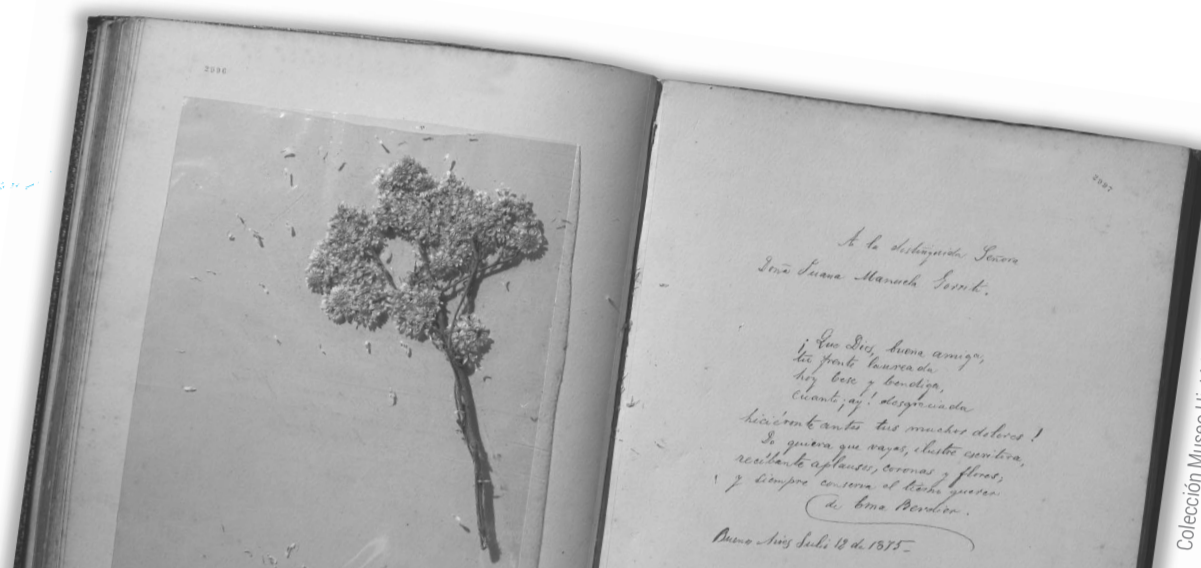 2996
2997
A la distinguida Señora
Doña Juana Manuela Gorriti.
¡Que Dios, buena amiga,
tu frente laureada
hoy bese y bendiga,
cuanto ¡ay! desgraciada
hiciéronte antes tus muchos dolores!
Do quiera que vayas, ilustre escritora,
recíbante aplausos, coronas y flores;
y siempre conserva el tierno querer
de Ema Berdier.
Buenos Aires Julio 12 de 1875_
Colección Museo